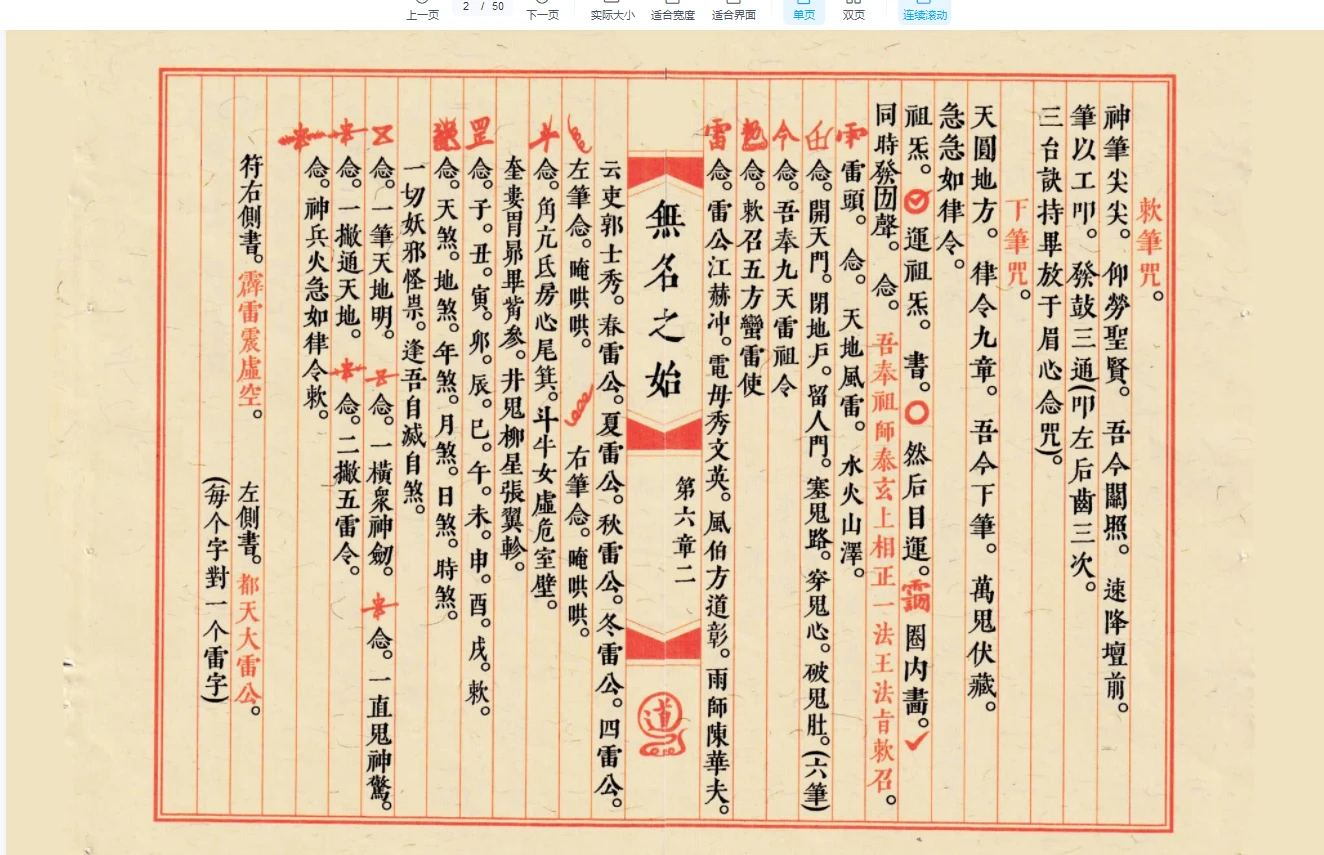 上一页
2 / 50
下一页
实际大小
适合宽度
适合界面
单页
双页
连续滚动
敕筆咒。
神筆尖尖。仰勞聖賢。吾今關照。速降壇前。
筆以工叩。發鼓三通(叩左后齒三次。
三台訣持畢放于眉心念咒)。
下筆咒。
天圓地方。律令九章。吾今下筆。萬鬼伏藏。
急急如律令。
祖炁。運祖炁。書。然后目運。圈内畵。
同時發聲。念。吾奉祖師泰玄上相正一法王法旨敕召。
雷頭。念。天地風雷。水火山澤。
念。開天門。閉地户。留人門。塞鬼路。穿鬼心。破鬼肚。(六筆)
令念。吾奉九天雷祖令
念。敕召五方蠻雷使
雷念。雷公江赫冲。電母秀文英。風伯方道彰。雨師陳華夫。
無名之始
第六章二
道
云吏郭士秀。春雷公。夏雷公。秋雷公。冬雷公。四雷公。
左筆念。唵哄哄。右筆念。唵哄哄。
斗念。角亢氐房心尾箕。斗牛女虛危室壁。
奎婁胃昴畢觜參。井鬼柳星張翼軫。
罡念。子。丑。寅。卯。辰。巳。午。未。申。酉。戌。敕。
念。天煞。地煞。年煞。月煞。日煞。時煞。
一切妖邪怪祟。逢吾自滅自煞。
念。一筆天地明。念。一橫衆神劒。念。一直鬼神驚。
念。一撇通天地。念。二撇五雷令。
念。神兵火急如律令敕。
符右側書。霹雷震虛空。左側書。都天大雷公。
(每个字對一个雷字)